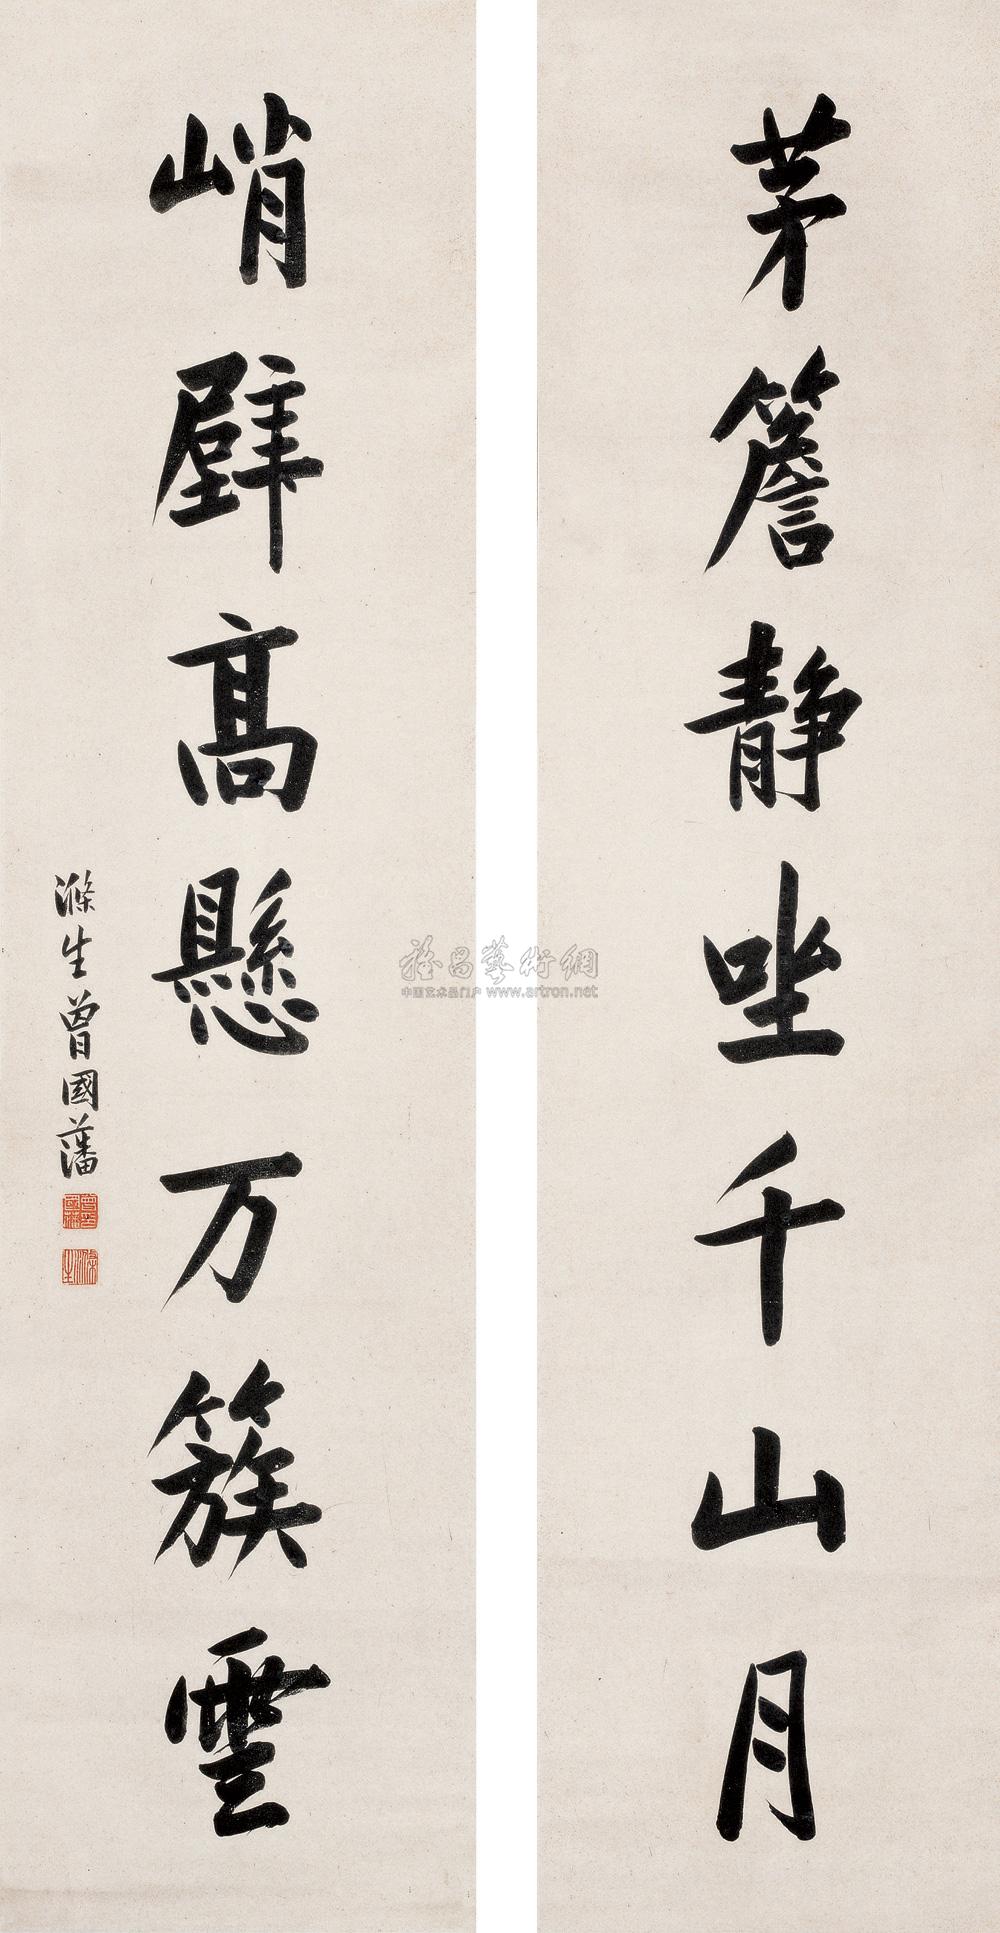 茅簷静坐千山月
峭壁高懸万簇雲
滌生曾國藩
雅昌藝術網
中国艺术品门户 www.artron.net